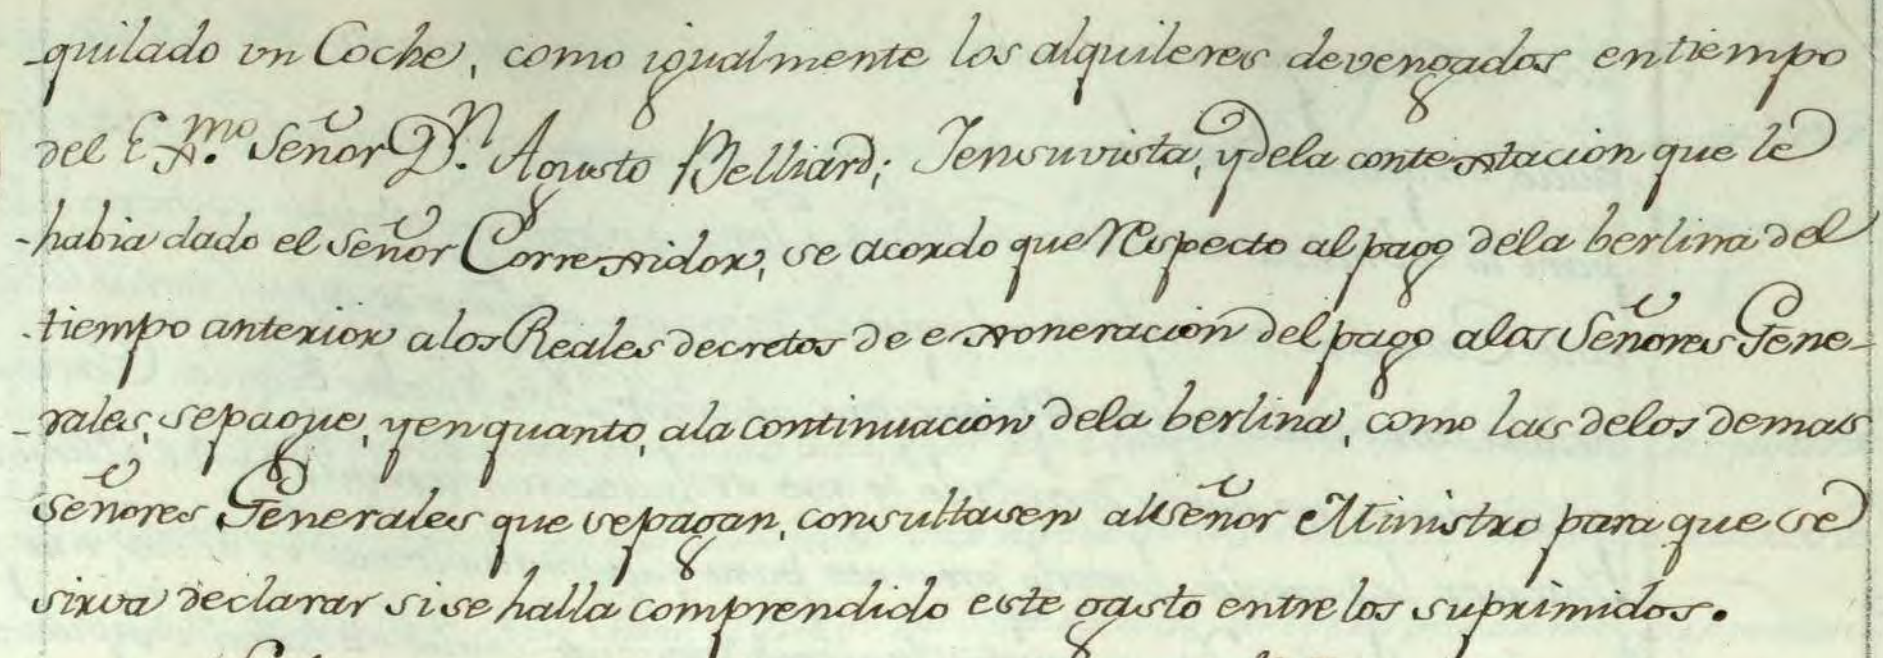 -quilado vn Coche, como igualmente los alquileres devengados en tiempo
del Exmo. Señor Dn. Agusto Belliard; Y en su vista, y de la contextacion que le
-habia dado el Señor Correxidor, se acordo que respecto al pago de la berlina del
-tiempo anterior a los Reales decretos de exoneracion del pago a los Señores Gene-
-rales, se pague, y en quanto, a la continuacion de la berlina, como las de los demas
Señores Generales que se pagan, consultasen al Señor Ministro para que se
sirva declarar si se halla comprendido este gasto entre los suprimidos.